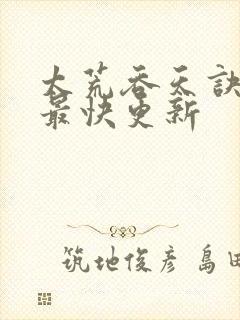 大荒吞天訣
最快更新
筑地俊彦 島田